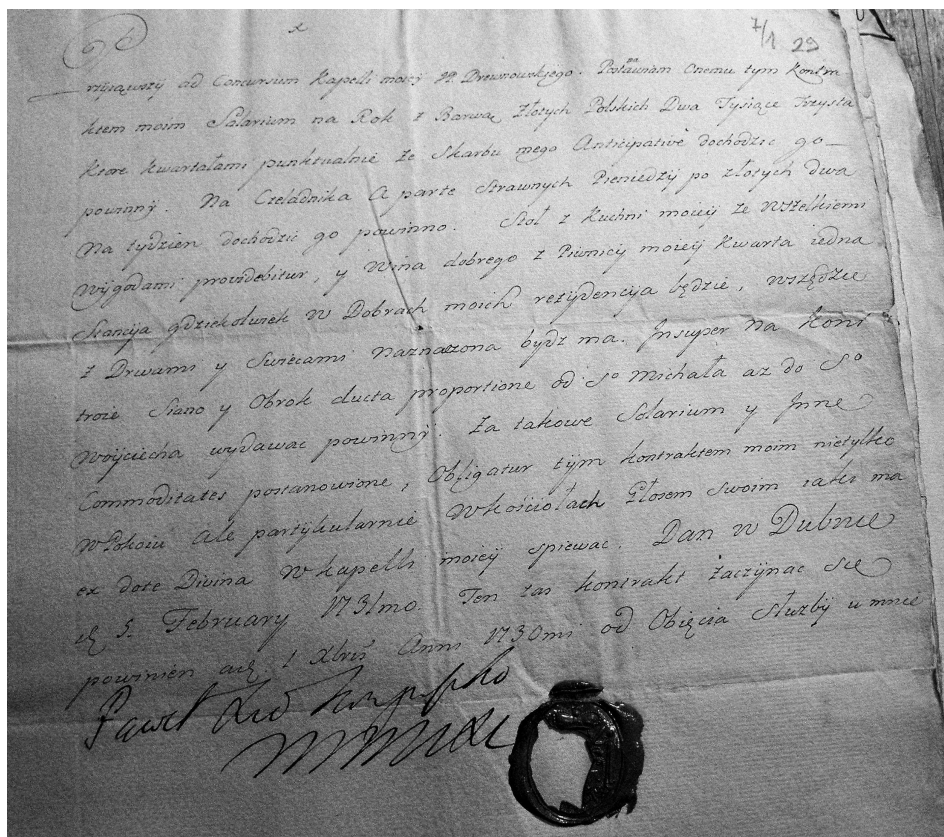 7/1 29
x
rzyiąwszy ad Concursum Kapelli moiey JP. Drewnowskiego. Postawiam Onemu tym Kontra
ktem moim Salarium na Rok z Barwą Złotych Polskich Dwa Tysiące Trzysta
Ktore kwartałami punktualnie ze Skarbu mego Anticipative dochodzic go
powinny. Na Czeladnika a parte Strawnych Pieniedzy po złotych dwa
na tydzien dochodzic go powinno. Stoł z Kuchni moieij ze wszelkiemi
wygodami providebitur, y Wina dobrego z Piwnicy moieij Kwarta iedna
Stancyja gdziekolwiek w Dobrach moich rezydencyja będzie, wszędzie
z Drwami y Swiecami naznaczona bydz ma. Insuper na Koni
troie Siano y Obrok ducta proportione od So Michała az do So
Woyciecha wydawac powinny. Za takowe Salarium y Inne
Commoditates postanowione, Obligatur tym kontraktem moim nietylko
w Pokoiu ale partykularnie w kosciołach Głosem swoim iaki ma
ex dote Divina w kapelli moieij spiewac. Dan w Dubnie
d. 5. February 1731mo. Ten zas kontrakt zaczynac się
powinien a d. 1 Xbris Anni 1730mi od Obięcia Służby u mnie
Paweł